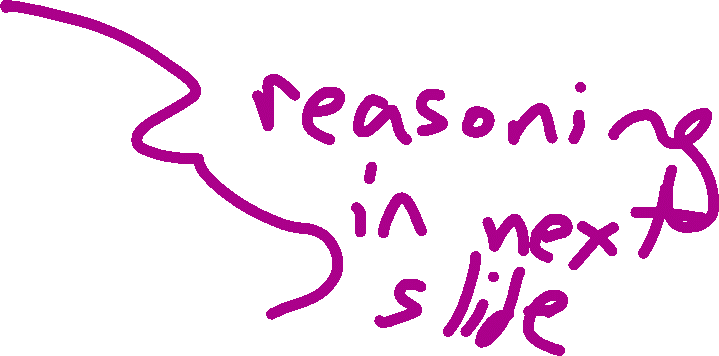 reasoning
in next
slide